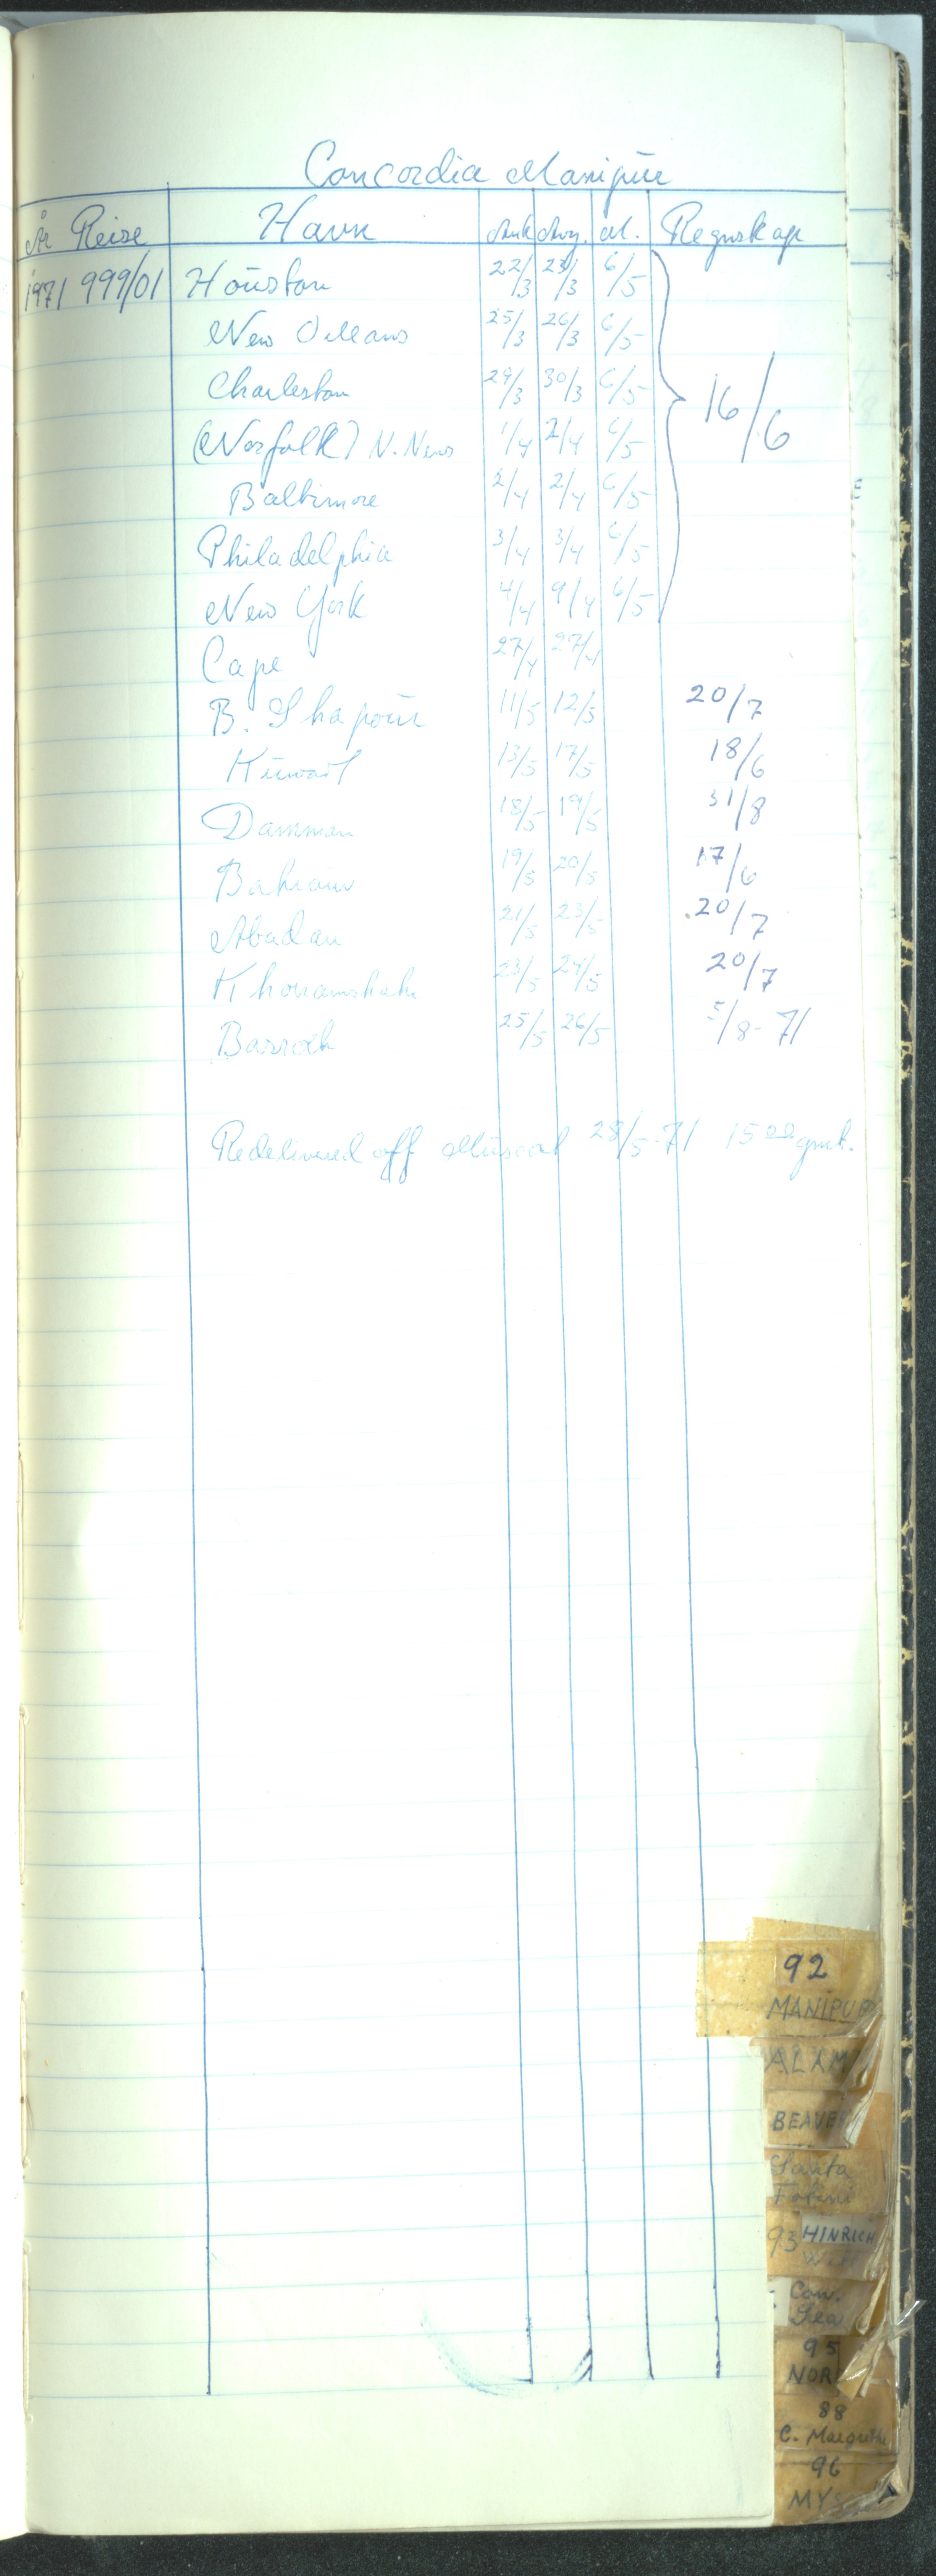 Concordia Manipur
År Reise Havn Ank Avg. M. Regnskap
1971 999/01 Houston 22/3 23/3 6/5
New Orleans 25/3 26/3 6/5
Charleston 29/3 30/3 6/5 16/6
(Norfolk) N. News 1/4 2/4 6/5
Baltimore 2/4 2/4 6/5
Philadelphia 3/4 3/4 6/5
New York 4/4 9/4 6/5
Cape 27/4 27/4
B. Shapour 11/5 12/5 20/7
Kuwait 13/5 17/5 18/6
Damman 18/5 19/5 31/8
Bahrain 19/5 20/5 17/6
Abadan 21/5 23/5 20/7
Khorramshahr 23/5 24/5 20/7
Basrah 25/5 26/5 5/8-71
Redelivered off Muscat 28/5-71 15 00 gmt.
92
MANIPUR
BEAVE
Santa
93 HINRICH
Con.
95
NOR
88
96
MYS